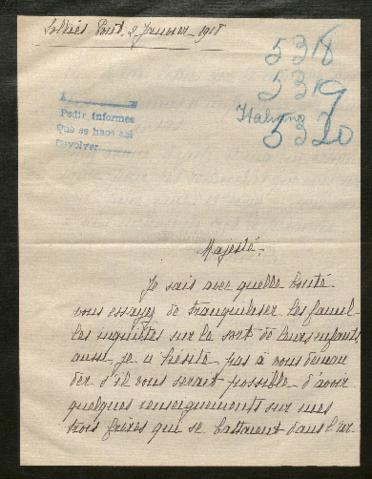 Solliès Pont, 2 Janvier 1918
5318
5319
Italiano
5320
A
Pedir informes
Que se hace así
Devolver
Majesté.
Je sais avec quelle bonté
vous essayez de tranquiliser les famil
les inquiètes sur le sort de leurs enfants
aussi je n'hésite pas à vous deman
der s'il vous serait possible d'avoir
quelques renseignements sur mes
trois frères qui se battaient dans l'ar-